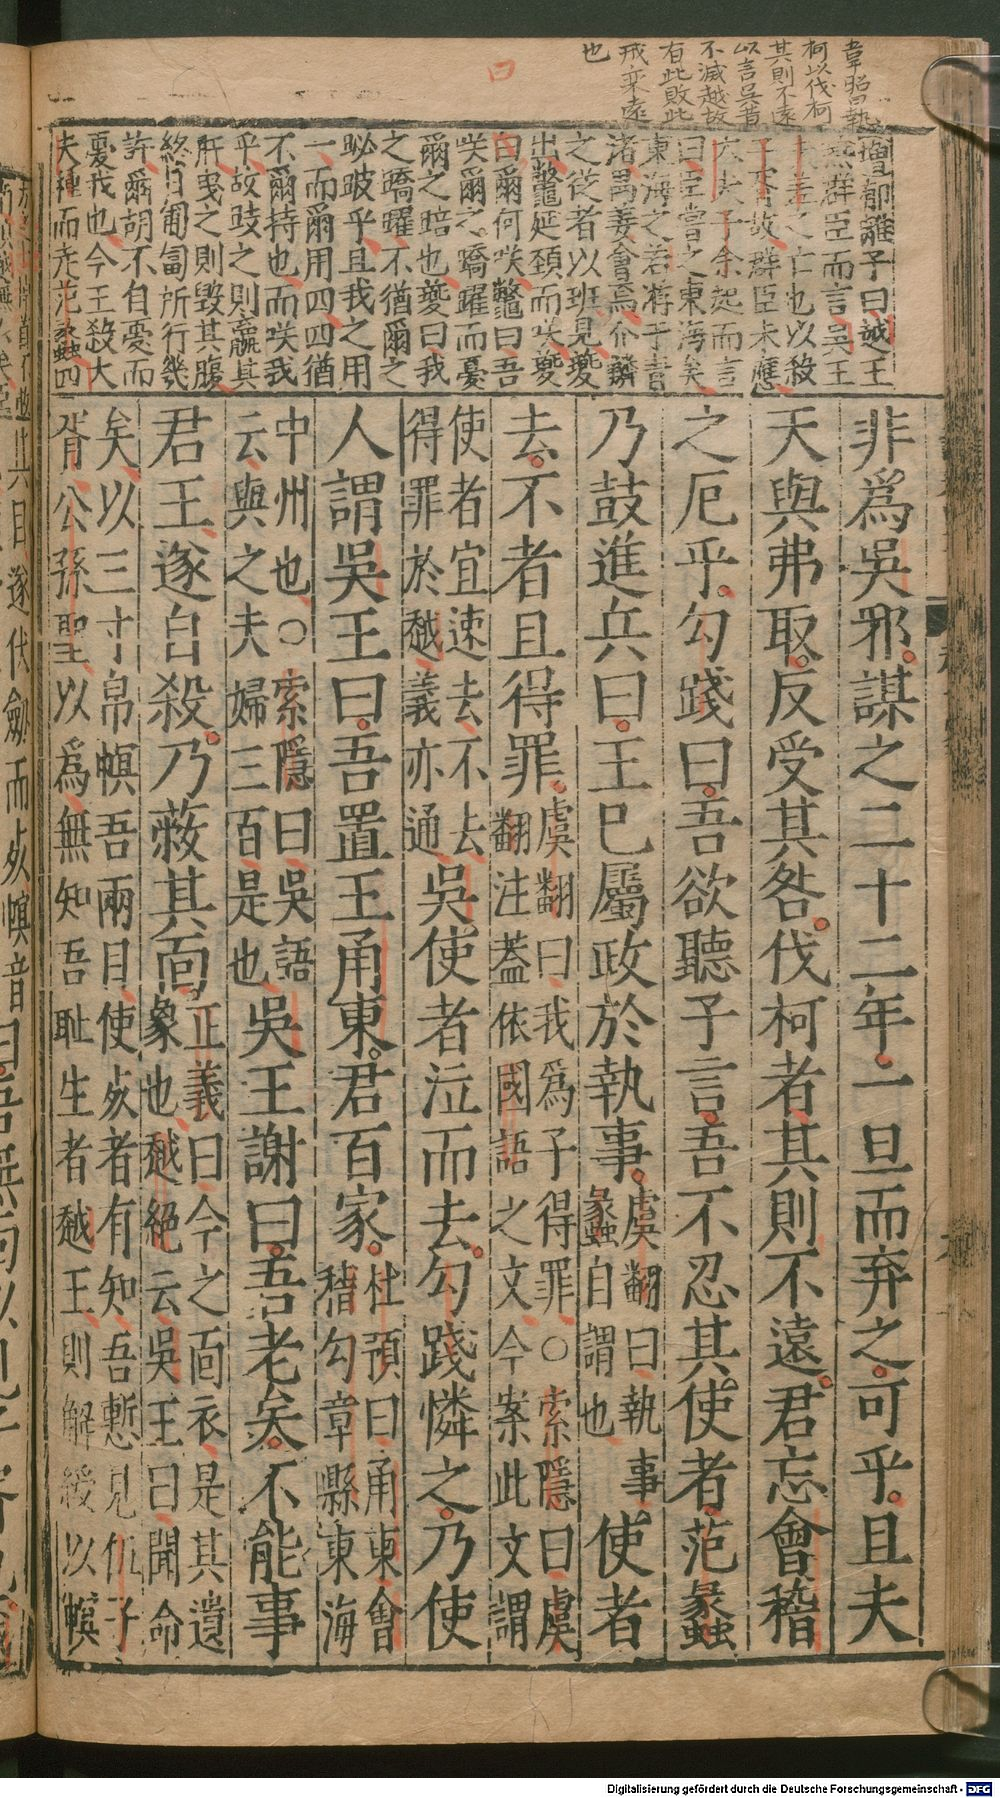 韋昭曰執
柯以伐柯
其則不遠
以言吳昔
不滅越故
有此敗此
戒乘遠
也
離子曰誠王
燕群臣而言吳王
夫差之亡也以殺
子胥故群臣未應
大夫子余起而言
曰臣嘗之東海矣
東海之若游于青
渚禹姜會焉介鱗
之從者以班見夔
出鱉延頸而咲夔
曰爾何咲鱉曰吾
咲爾之蹻躍而憂
爾之踣也夔曰我
之蹻躍不猶爾之
跛乎且我之用
一而爾用四四猶
不爾持也而咲我
乎故跂之則羸其
骭曳之則毀其腹
終日匍匐所行幾
許爾胡不自憂而
憂我也今王殺大
夫種而走范蠡四
非爲吳邪謀之二十二年一旦而弃之可乎且夫
天與弗取反受其咎伐柯者其則不遠君忘會稽
之厄乎勾踐曰吾欲聽子言吾不忍其使者范蠡
乃鼓進兵曰王已屬政於執事虞翻曰執事蠡自謂也使者
去不者且得罪虞翻曰我爲子得罪○索隱曰虞翻注蓋依國語之文今案此文謂
使者宜速去不去得罪於越義亦通吳使者泣而去勾踐憐之乃使
人謂吳王曰吾置王甬東君百家杜預曰甬東會稽勾章縣東海
中州也○索隱曰吳語云與之夫婦三百是也吳王謝曰吾老矣不能事
君王遂自殺乃蔽其面正義曰今之面衣是其遺象也越絕云吳王曰聞命
矣以三寸帛幎吾兩目使死者有知吾慙見伍子
胥公孫聖以爲無知吾恥生者越王則解綬以幎
遂伏劍而死幎音
Digitalisierung gefördert durch die Deutsche Forschungsgemeinschaft - DFG